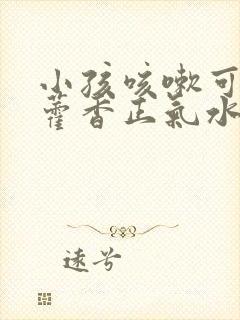 小孩咳嗽可
藿香正氣水
遠兮